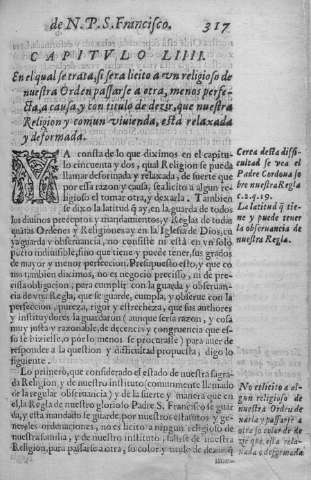 de N. P. S. Francisco. 317
CAPITVLO LIIII.
En el qual se trata, si sera licito a vn religioso de
nuestra Orden passarse a otra, menos perfe-
cta, a causa, y con titulo de dezir, que nuestra
Religion y comun viuienda, està relaxada
y deformada.
YA consta de lo que diximos en el capitu-
lo cincuenta y dos, qual Religion se pueda
llamar deformada y relaxada, de suerte que
por essa razon y causa, sea licito a algun re-
ligioso el tomar otra, y dexarla. Tambien
se dixo la latitud q̃ ay, en la guarda de todos
los diuinos preceptos y mandamientos, y Reglas de todas
quãtas Ordenes y Religiones ay en la Iglesia de Dios, cu-
ya guarda y obseruancia, no consiste ni està en vn solo
pũto indiuisible, sino que tiene y puede tener, sus grados
de mayor y de menor perfeccion. Presupuesto esto, y que co
mo tambien diximos, no es negocio preciso, ni de pre-
cisa obligacion, para cumplir con la guarda y obseruan-
cia de vna Regla, que se cumpla, y obserue con la
perfeccion, pureza, rigor y estrechura, que sus authores
y instituydores la guardaron (aunque seria razon, y cosa
muy justa y razonable, de decencia y congruencia que es-
so se hiziesse, o por lo menos se procurasse) para auer de
responder a la question y dificultad propuesta, digo lo
siguiente.
Lo primero, que considerado el estado de nuestra sagra-
da Religion, y de nuestro instituto (comunmente llamado
de la regular obseruancia) y de la suerte y manera que en
el, la Regla de nuestro glorioso Padre S. Francisco se guar
da, y està mandado se guarde, por nuestros estatutos y ge-
nerales ordenaciones, no es licito a ningun religioso de
nuestra familia, y de nuestro instituto, salirse de nuestra
Religion, para passarse a otra, so color y titulo de dezir, q̃
Cerca desta diffi-
cultad se vea el
Padre Cordoua so
bre nuestra Regla
c. 2. q. 19.
La latitud q̃ tie-
ne y puede tener
la obseruancia de
nuestra Regla.
No es licito a al-
gun religioso de
nuestra Orden de
xarla y passarse a
otra so color de de
zir que està rela-
xada y deformada